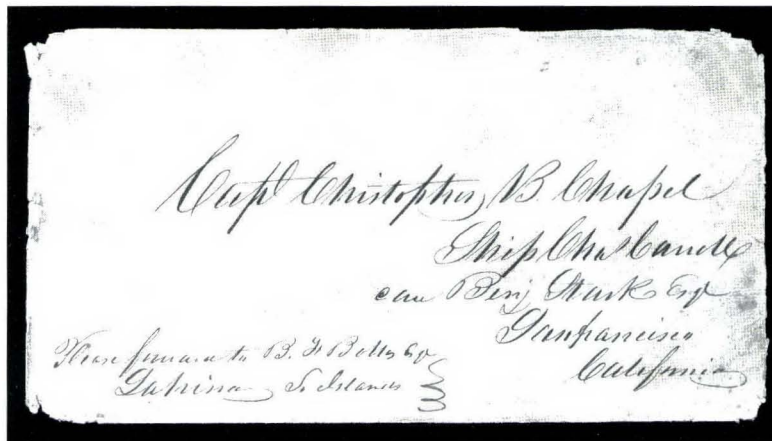 Capt Christopher B. Chapel
Ship Chas Carroll
care Benj Stark Esq
Sanfrancisco
California
Please forward to B. F. Bolles Esq
Lahina S. Islands